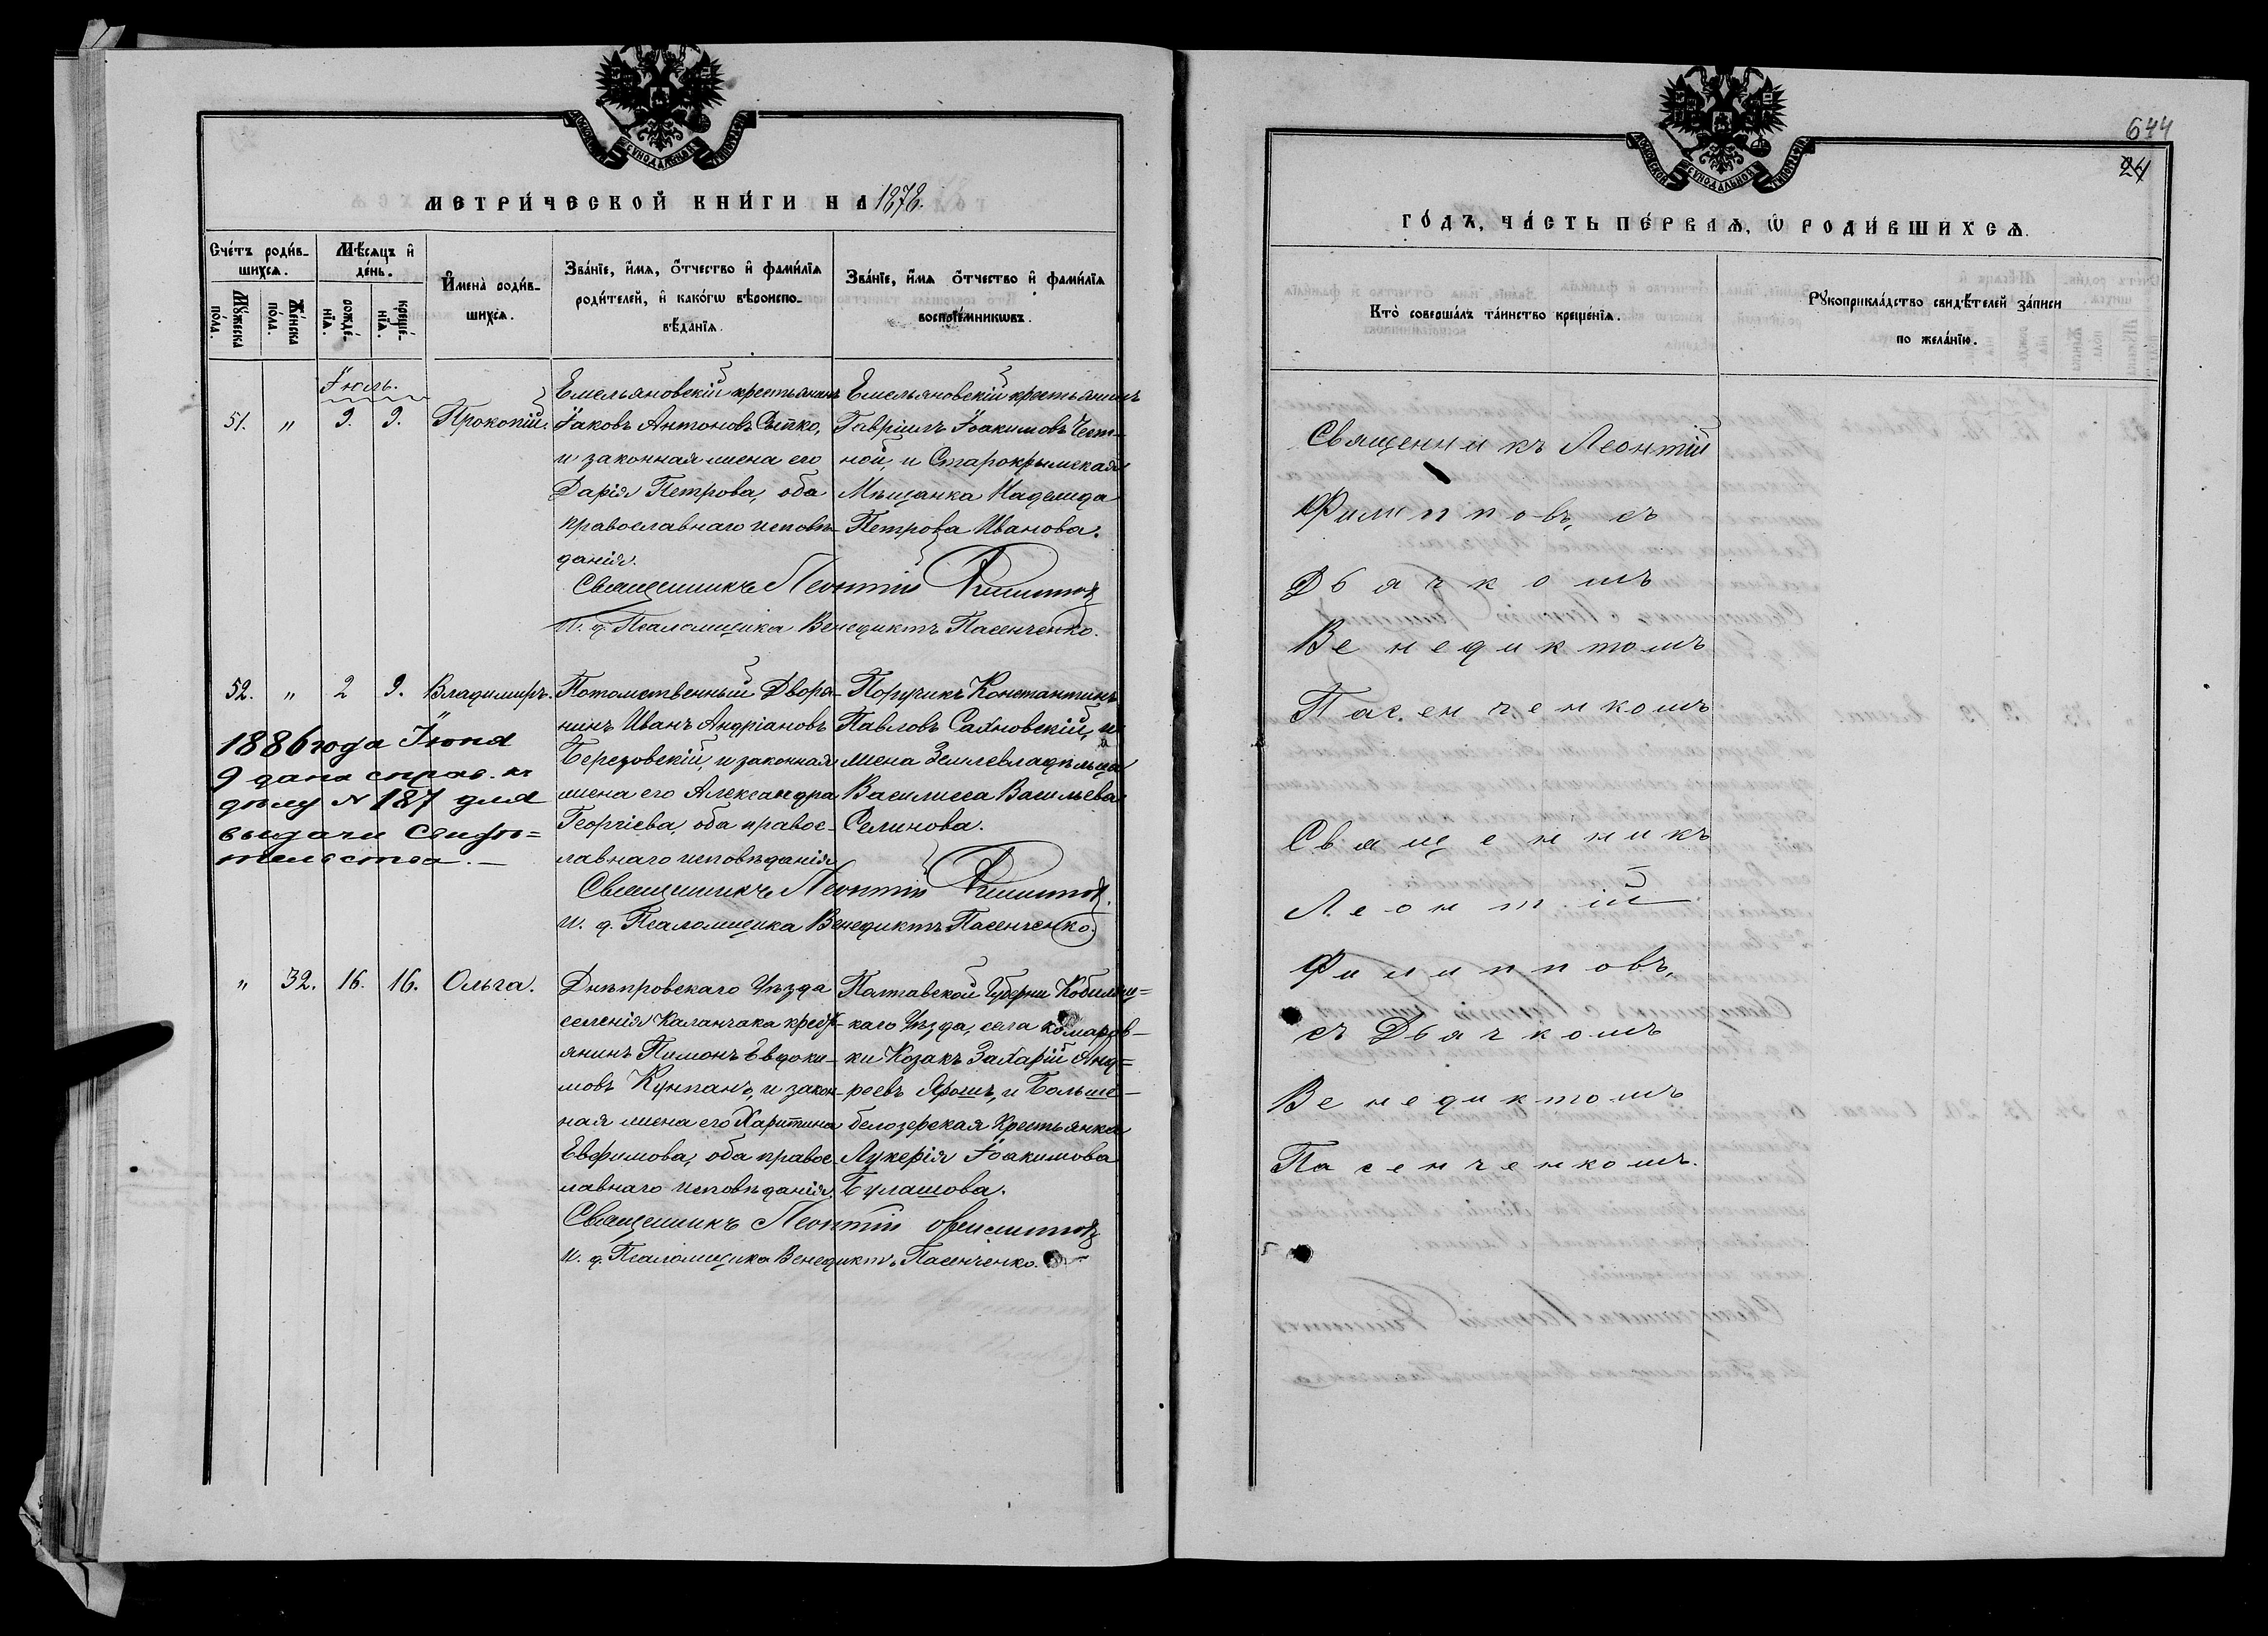 МЕТРИ́ЧЕСКОЙ КНИ́ГИ НА 1878.
Сче́тъ роди́вшихсѧ.
Мѣ́сѧцъ и де́нь.
Мꙋ́жеска по́ла.
Же́нска по́ла.
рожде́нїѧ.
креще́нїѧ.
И҆мена̀ роди́вшихсѧ.
Зва́нїе, и҆́мѧ, ѻ҆́тчество и҆ фами́лїѧ
роди́телей, и҆ како́гѡ вѣроиспо-
вѣ́данїѧ.
Зва́нїе, и҆́мѧ ѻ҆́тчество и҆ фами́лїѧ
воспрїе́мникѡвъ.
Іюль.
51. " 9. 9. Прокопій.
Емельяновскій крестьянинъ
Іаковъ Антоновъ Сытко,
и законная жена его
Дарія Петрова, оба
православнаго исповѣ-
данія.
Емельяновскій крестьянинъ
Гавріилъ Іоакимовъ Чест-
ной, и Старокрымская
Мѣщанка Надежда
Петрова Иванова.
Священникъ Леонтій Филиппов
И. д. Псаломщика Венедиктъ Пасенченко.
52. " 2 9. Владимиръ.
Потомственный Дворя-
нинъ Иванъ Андріановъ
Березовскій, и законная
жена его Александра
Георгіева, оба правос-
лавнаго исповѣданія
Поручикъ Константинъ
Павловъ Сахновскій, и
жена Землевладѣльца
Василисса Васильева
Селинова.
1886 года Іюня
9 дана справ. къ
дѣлу № 187 для
выдачи Свидѣ=
тельства.—
Священникъ Леонтій Филиппов.
И. д. Псаломщика Венедиктъ Пасенченко.
" 32. 16. 16. Ольга.
Днѣпровскаго Уѣзда
селенія Каланчака крест-
янинъ Пимонъ Евдоки-
мовъ Купланъ, и закон-
ная жена его Харитина
Евфимова, оба правос-
лавнаго исповѣданія.
Полтавской Губерни Кобыляц=
каго Уѣзда, села Комаров-
ки Козакъ Захарій Анд=
реевъ Ярошъ, и Больше-
белозерская Крестьянка
Лукерія Іоакимова
Булашова.
Священникъ Леонтій Филиппов
И. д. Псаломщика Венедиктъ Пасенченко.
644
24
ГО́ДЪ, ЧА́СТЬ ПЕ́РВАѦ, Ѡ҆ РОДИ́ВШИХСѦ.
Кто̀ соверша́лъ та́инство креще́нїѧ.
Рꙋкоприкла́дство свидѣ́телей за́писи
по жела́нїю.
Священникъ Леонтій
Филипповъ, съ
Дьячкомъ
Венедиктомъ
Пасенченкомъ
Священникъ
Леонтій
Филипповъ,
съ Дьячкомъ
Венедиктомъ
Пасенченкомъ.